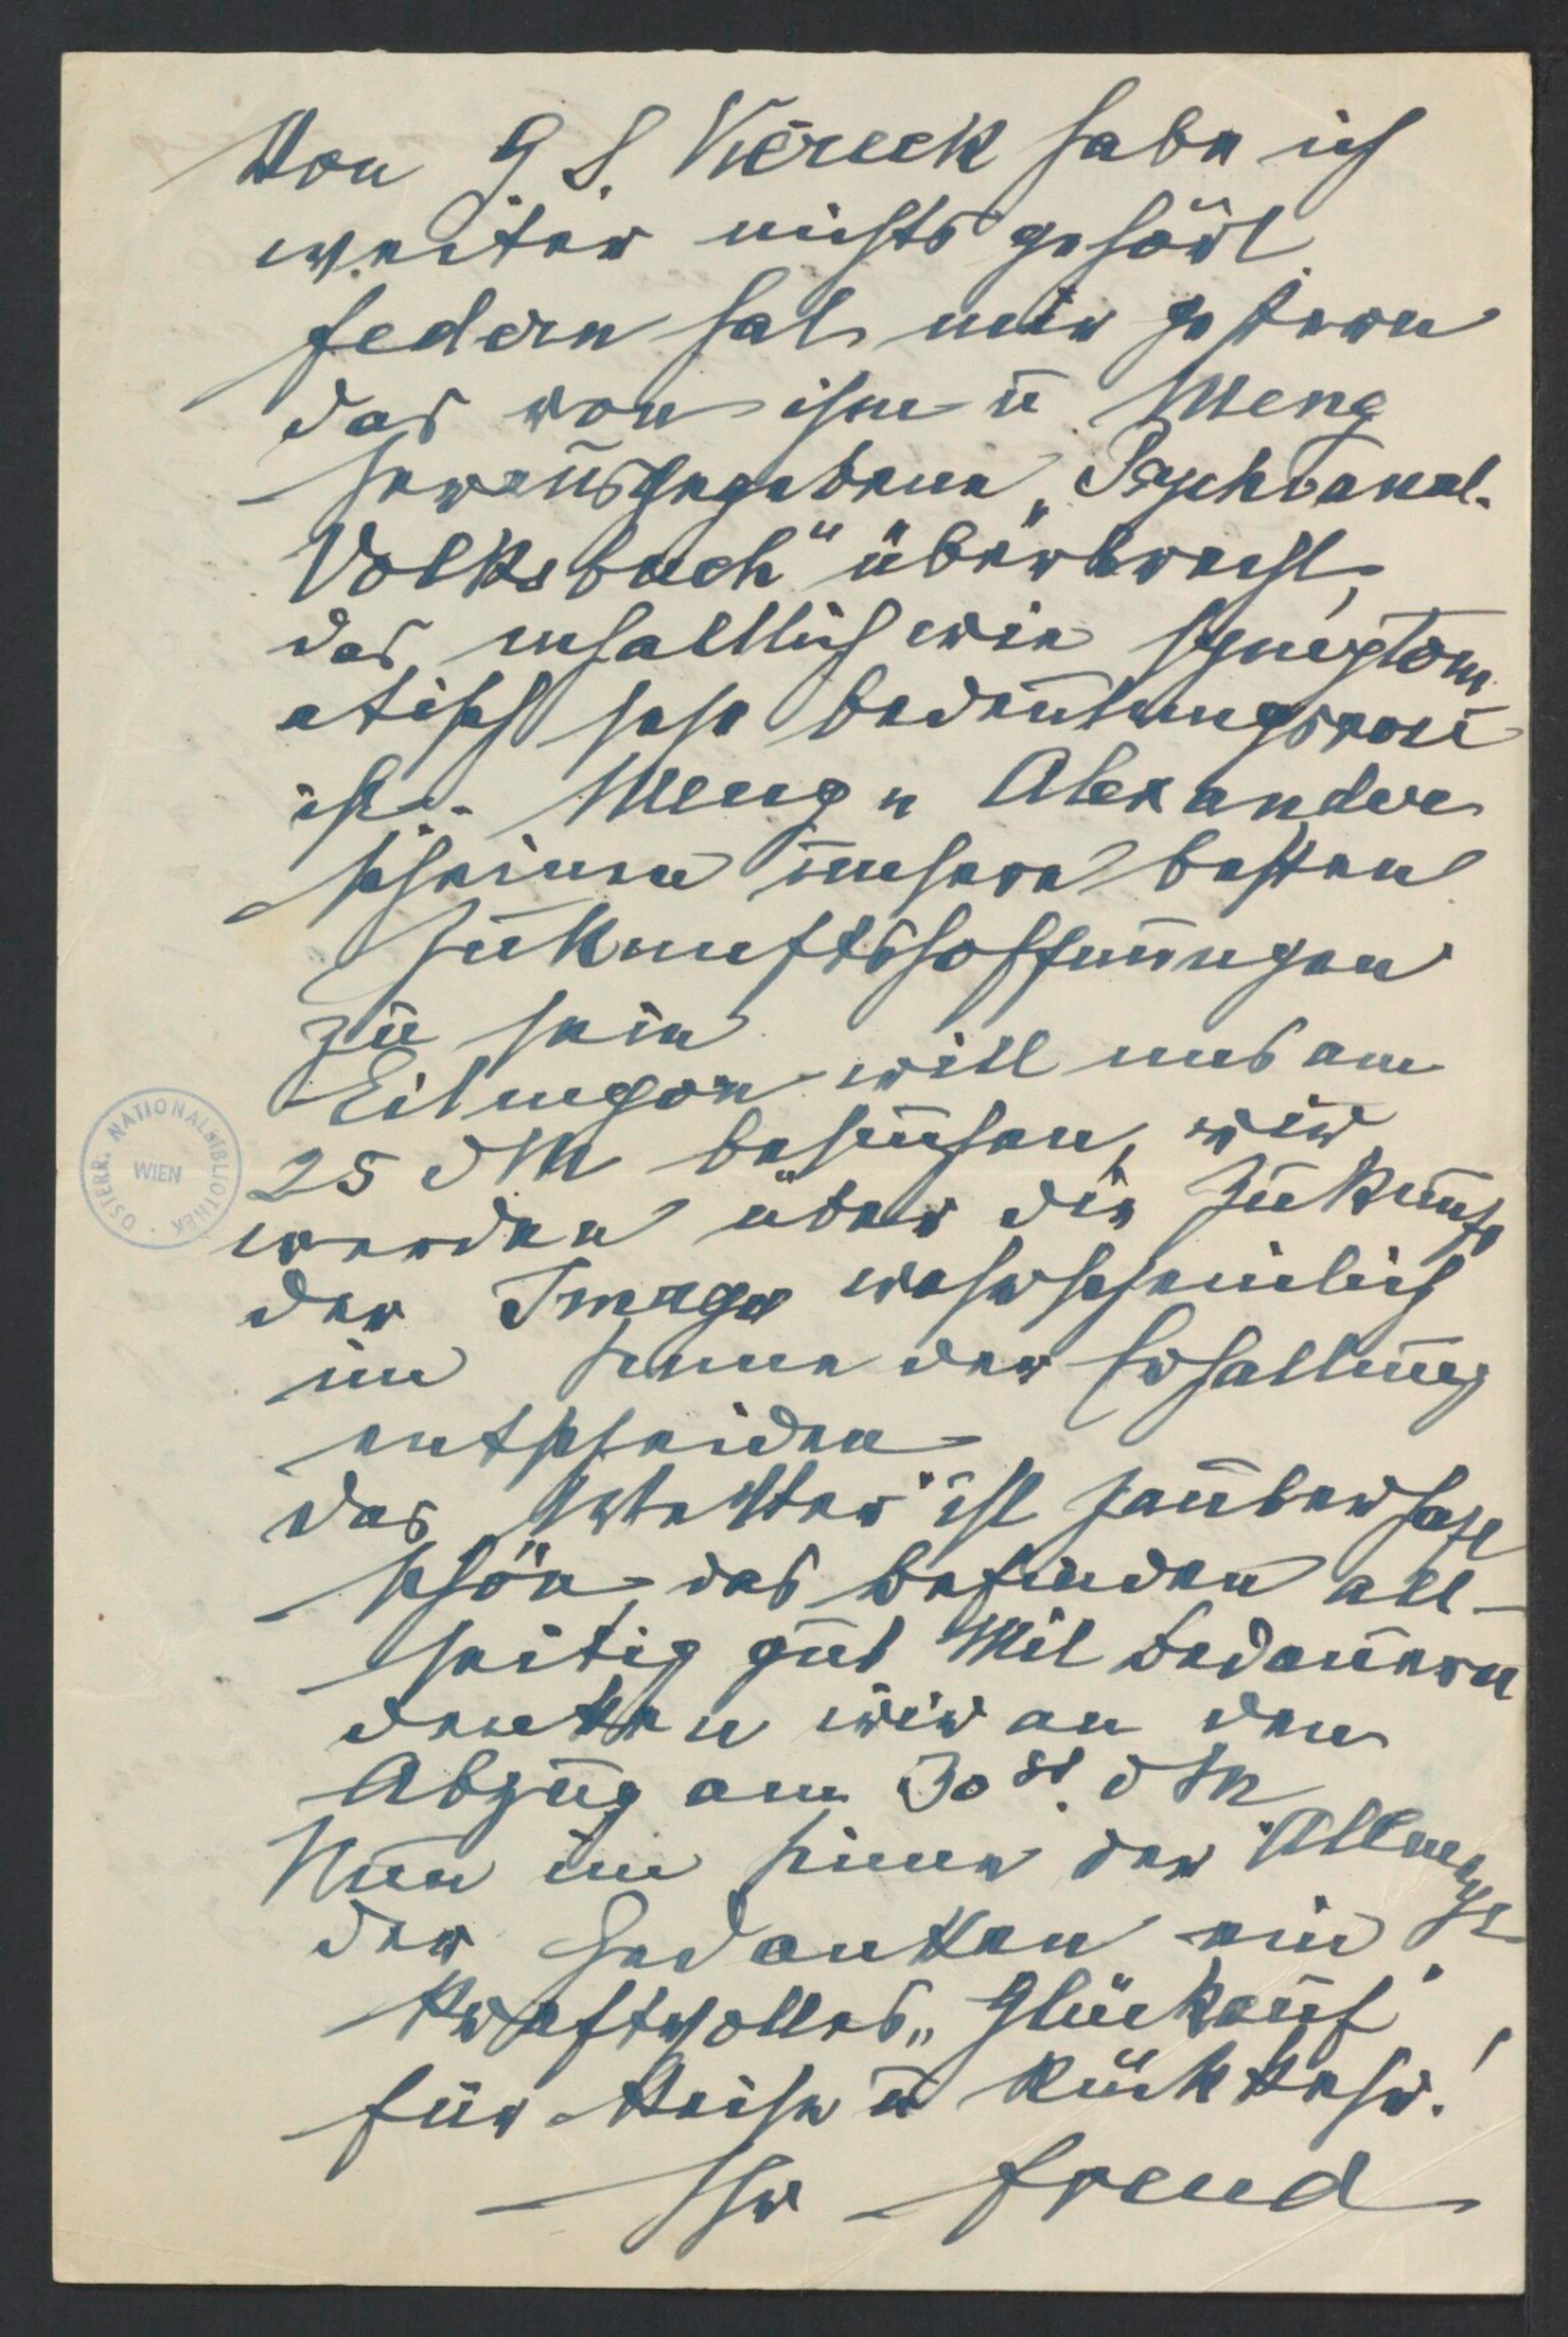 Von G. S. Viereck habe ich
weiter nichts gehört.
Federn hat mir gestern
das von ihm u Meng
herausgegebene „Psychoanal.
Volksbuch“ überbracht,
das inhaltlich wie symptom
atisch sehr bedeutungsvoll
ist. Meng u Alexander
scheinen unsere besten
Zukunftshoffnungen
zu sein.
Eitingon will uns am
25 d M besuchen, wir
werden über die Zukunft
der Imago wahrscheinlich
im Sinne der Erhaltung
entscheiden.
Das Wetter ist zauberhaft
schön, das Befinden all-
seitig gut. Mit Bedauern
denken wir an den
Abzug am 30st. d M
Nun im Sinne der Allmacht
der Gedanken ein
kraftvolles „Glückauf“
für Reise u Rückkehr!
Ihr Freud
ÖSTERR. NATIONALBIBLIOTHEK
WIEN